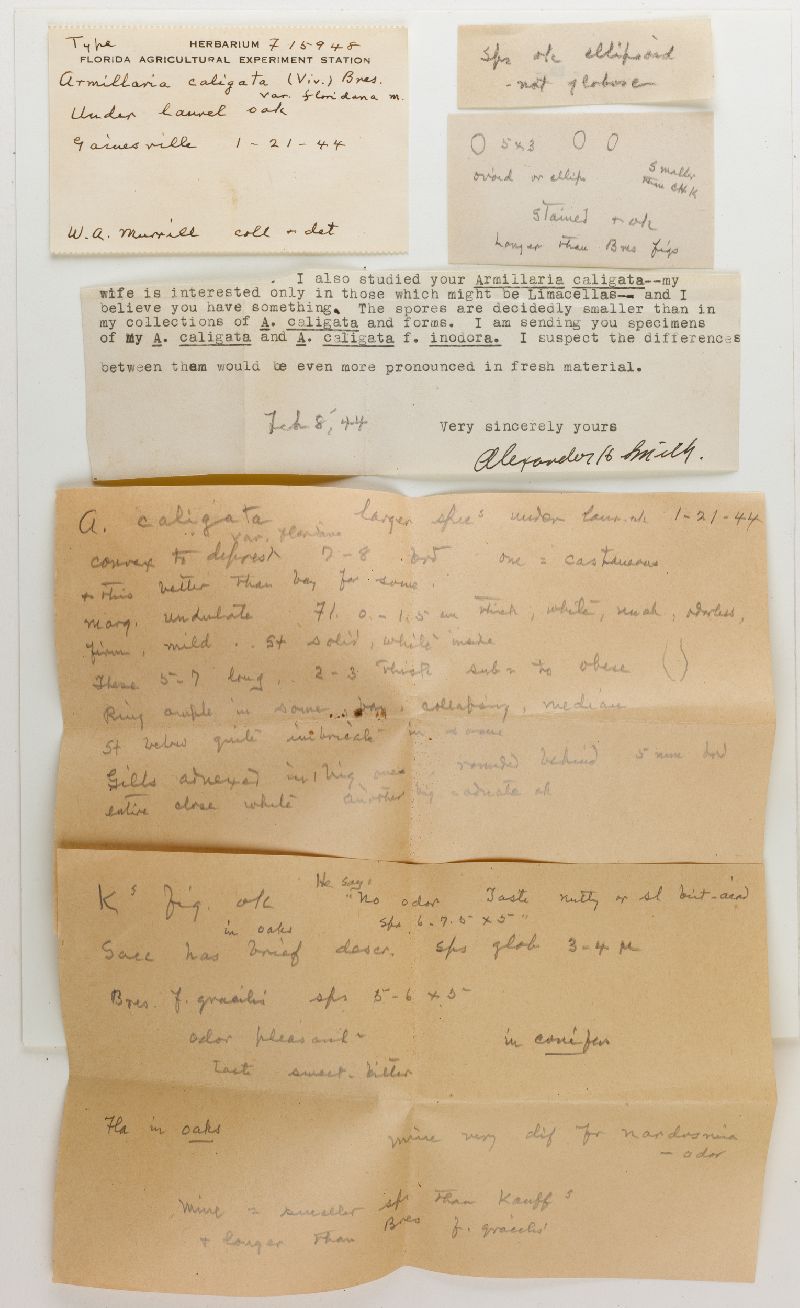 Type HERBARIUM F 15948
FLORIDA AGRICULTURAL EXPERIMENT STATION
Armillaria caligata (Viv.) Bres.
var. floridana M.
Under laurel oak
Gainesville 1-21-44
W.A. Murrill coll & det
Sps ok ellipsoid
- not globose
5x3
ovoid or ellips
Smaller
than Ch. K
Stained & ok
Longer than Bres figs
I also studied your Armillaria caligata--my
wife is interested only in those which might be Limacellas-- and I
believe you have something. The spores are decidedly smaller than in
my collections of A. caligata and forms. I am sending you specimens
of my A. caligata and A. caligata f. inodora. I suspect the differences
between them would be even more pronounced in fresh material.
Feb 8, 44
Very sincerely yours
Alexander H Smith.
A. caligata larger spec s under laur. ok 1-21-44
var. floridana
convex to depress 7-8 brd one = castaneous
& this better than bay for some.
marg. undulate Fl. 0.-1.5 cm thick, white, odorless,
firm, mild.. St solid, white inside
These 5-7 long, 2-3 thick sub = to obese ( )
Ring ample in some, collapsing, median
St below quite imbricate in some
Gills adnexed in 1 big one, rounded behind 5 mm brd
entire close white another big = adnate ok
K s fig. ok He says "No odor Taste nutty or sl bit-acid
in oaks sps 6-7.5 x 5"
Sacc has brief descr. sps glob 3-4 µ
Bres. f. gracilis sps 5-6 x 5
odor pleasant - in conifer
taste sweet-bitter
Fla in oaks
mine very dif fr nardosmia
- odor
Mine = smaller sps than Kauff s
& longer than Bres f. gracilis